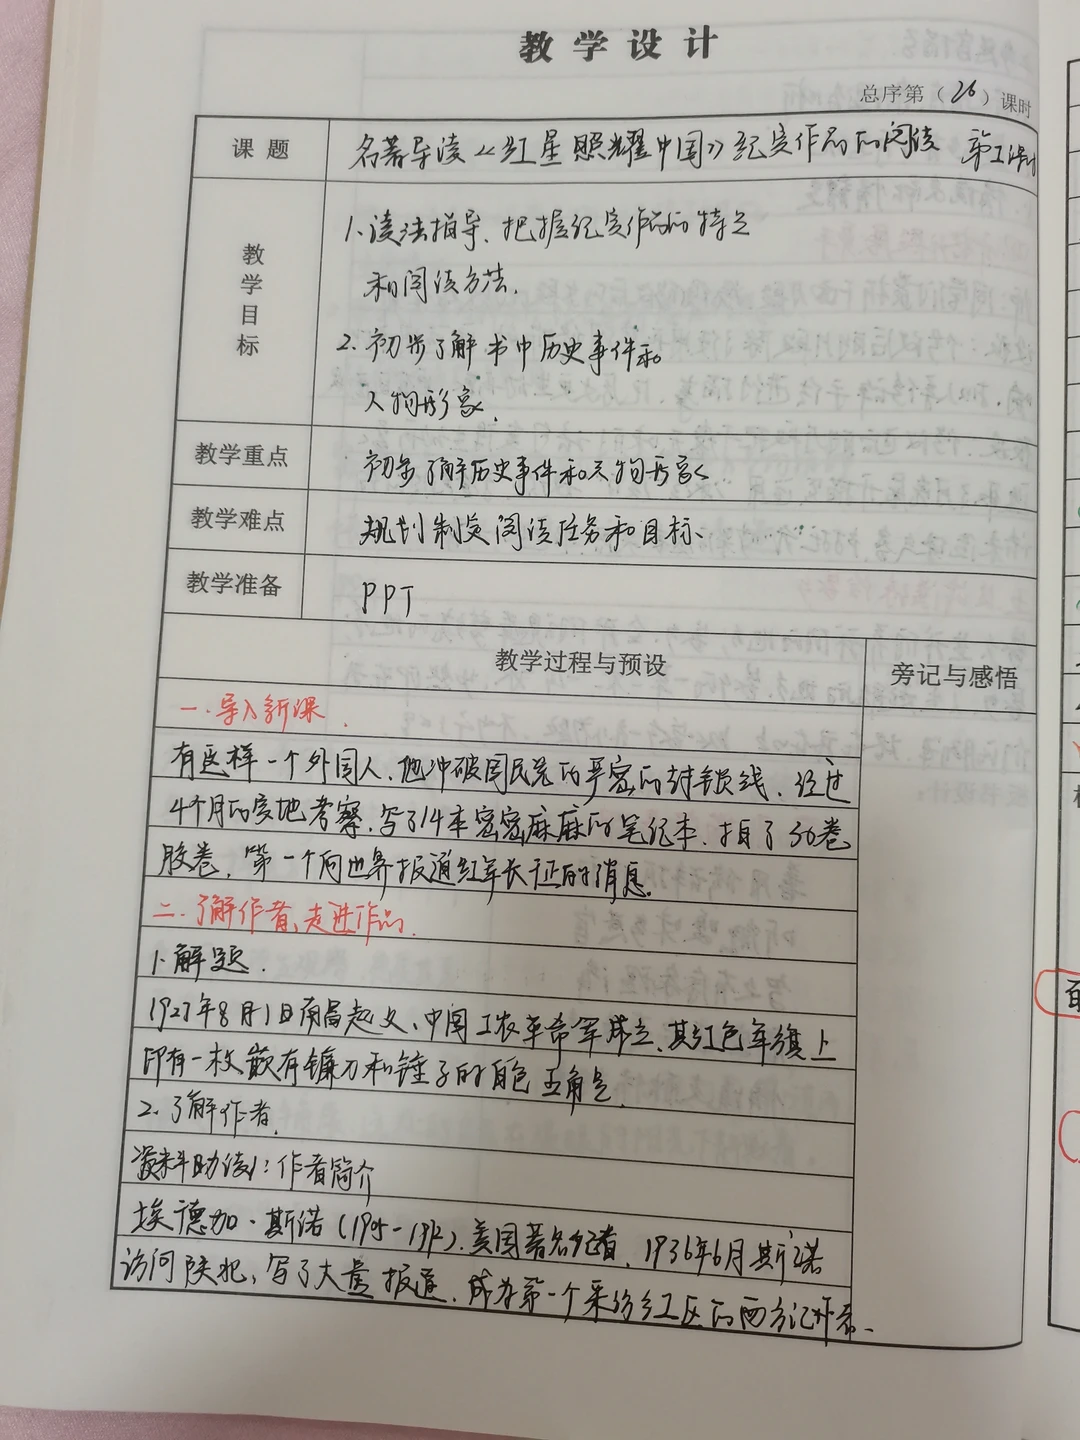 教学设计
总序第（26）课时
课题
名著导读《红星照耀中国》纪实作品的阅读 第1课时
教学目标
1.读法指导、把握纪实作品的特点
和阅读方法.
2.初步了解书中历史事件和
人物形象.
教学重点
初步了解历史事件和人物形象
教学难点
规划制定阅读任务和目标、
教学准备
PPT
教学过程与预设
旁记与感悟
一.导入新课.
有这样一个外国人,他冲破国民党的严密的封锁线,经过
4个月的实地考察,写了14本密密麻麻的笔记本,拍了30卷
胶卷,第一个向世界报道红军长征的消息.
二.了解作者,走进作品.
1.解题.
1927年8月1日南昌起义、中国工农革命军成立、其红色军旗上
印有一枚嵌有镰刀和锤子的白色五角星.
2.了解作者.
资料助读1:作者简介
埃德加·斯诺,美国著名记者,1936年6月斯诺
访问陕北,写了大量报道,成为第一个采访红区的西方记者、